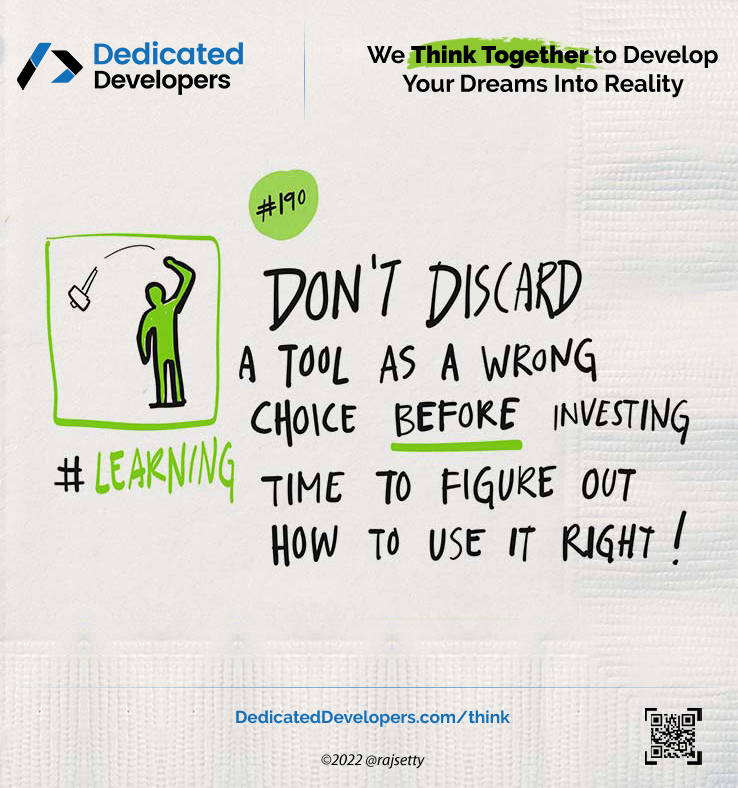 Dedicated
Developers
We Think Together to Develop
Your Dreams Into Reality
#190
DON'T DISCARD
A TOOL AS A WRONG
CHOICE BEFORE INVESTING
TIME TO FIGURE OUT
HOW TO USE IT RIGHT!
# LEARNING
DedicatedDevelopers.com/think
©2022 @rajsetty